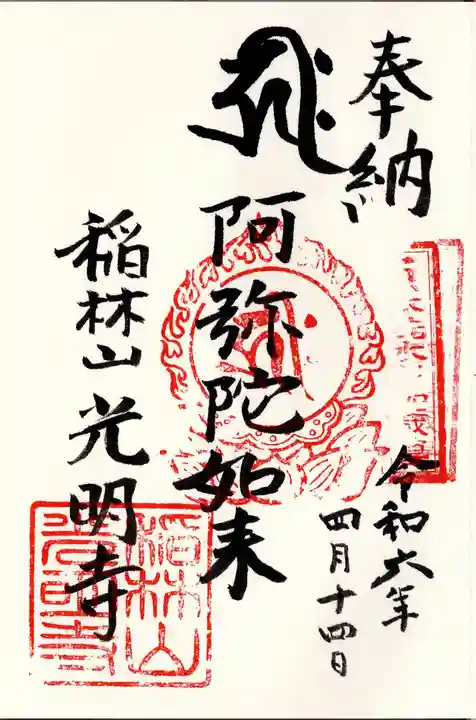 奉納
令和六年
四月十四日
阿弥陀如来
稲林山光明寺
稲林山
光明寺